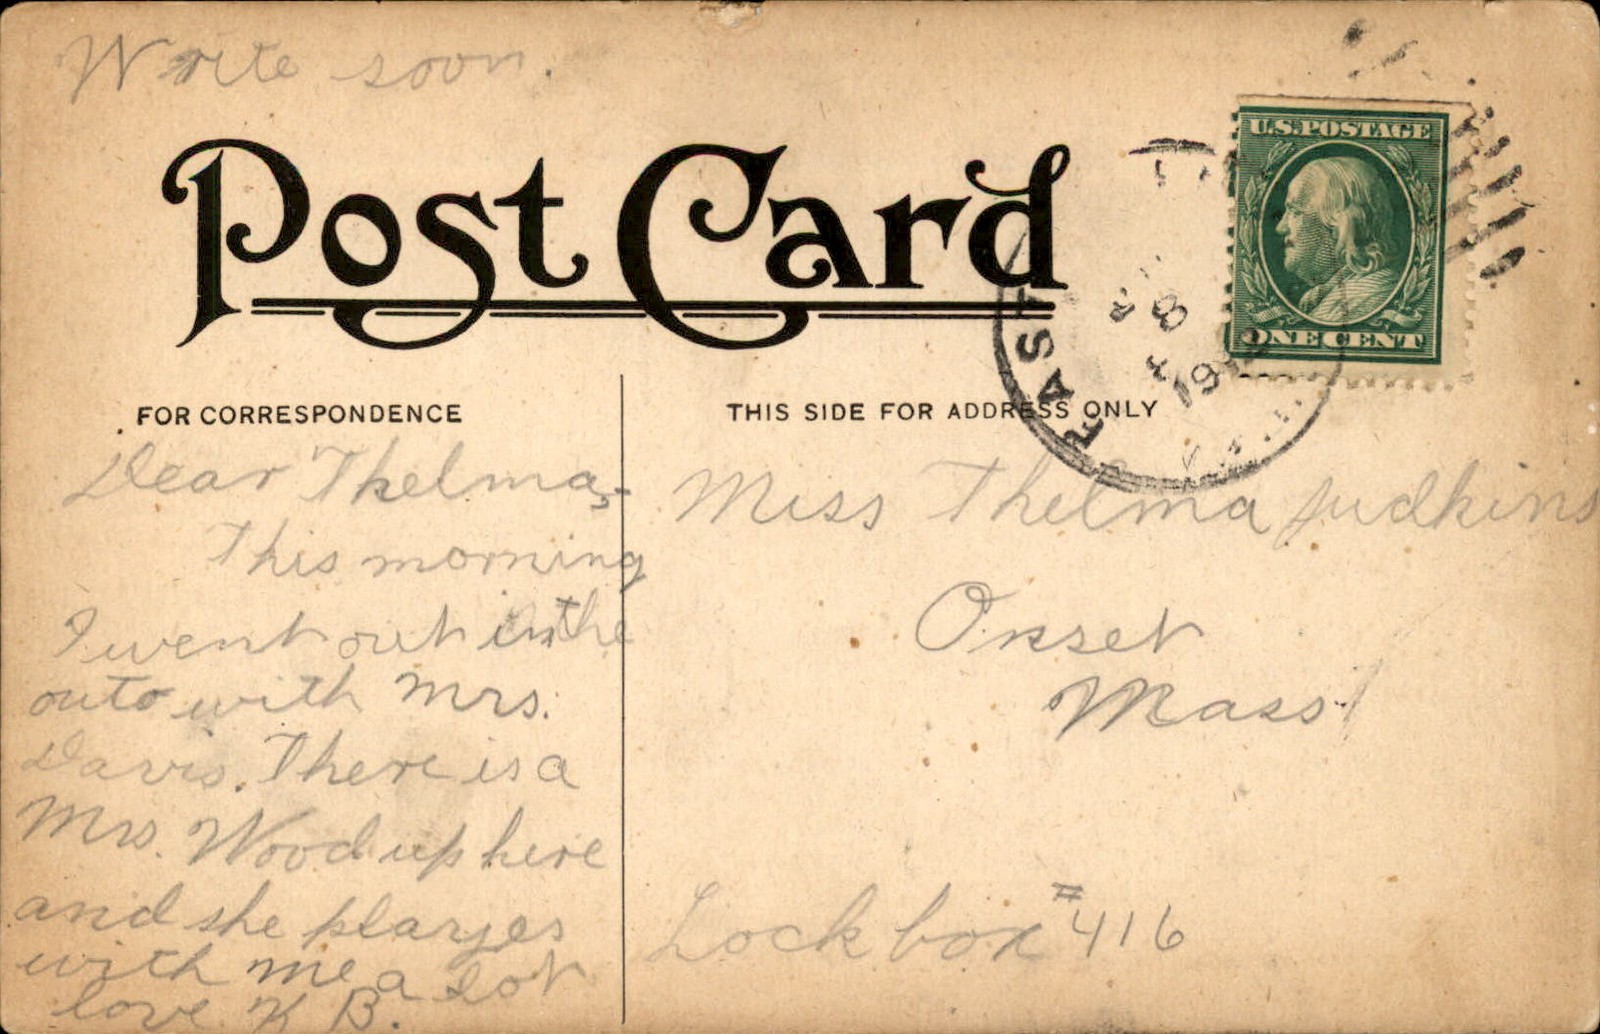 Write soon.
Post Card
U.S. POSTAGE
ONE CENT
EAST
8
FOR CORRESPONDENCE
THIS SIDE FOR ADDRESS ONLY
Dear Thelma,-
This morning
I went out in the
outo with Mrs.
Davis. There is a
Mrs. Wood up here
and she playes
with me a lot
love K B.
Miss Thelma Judkins
Onset
Mass
Lock box #416